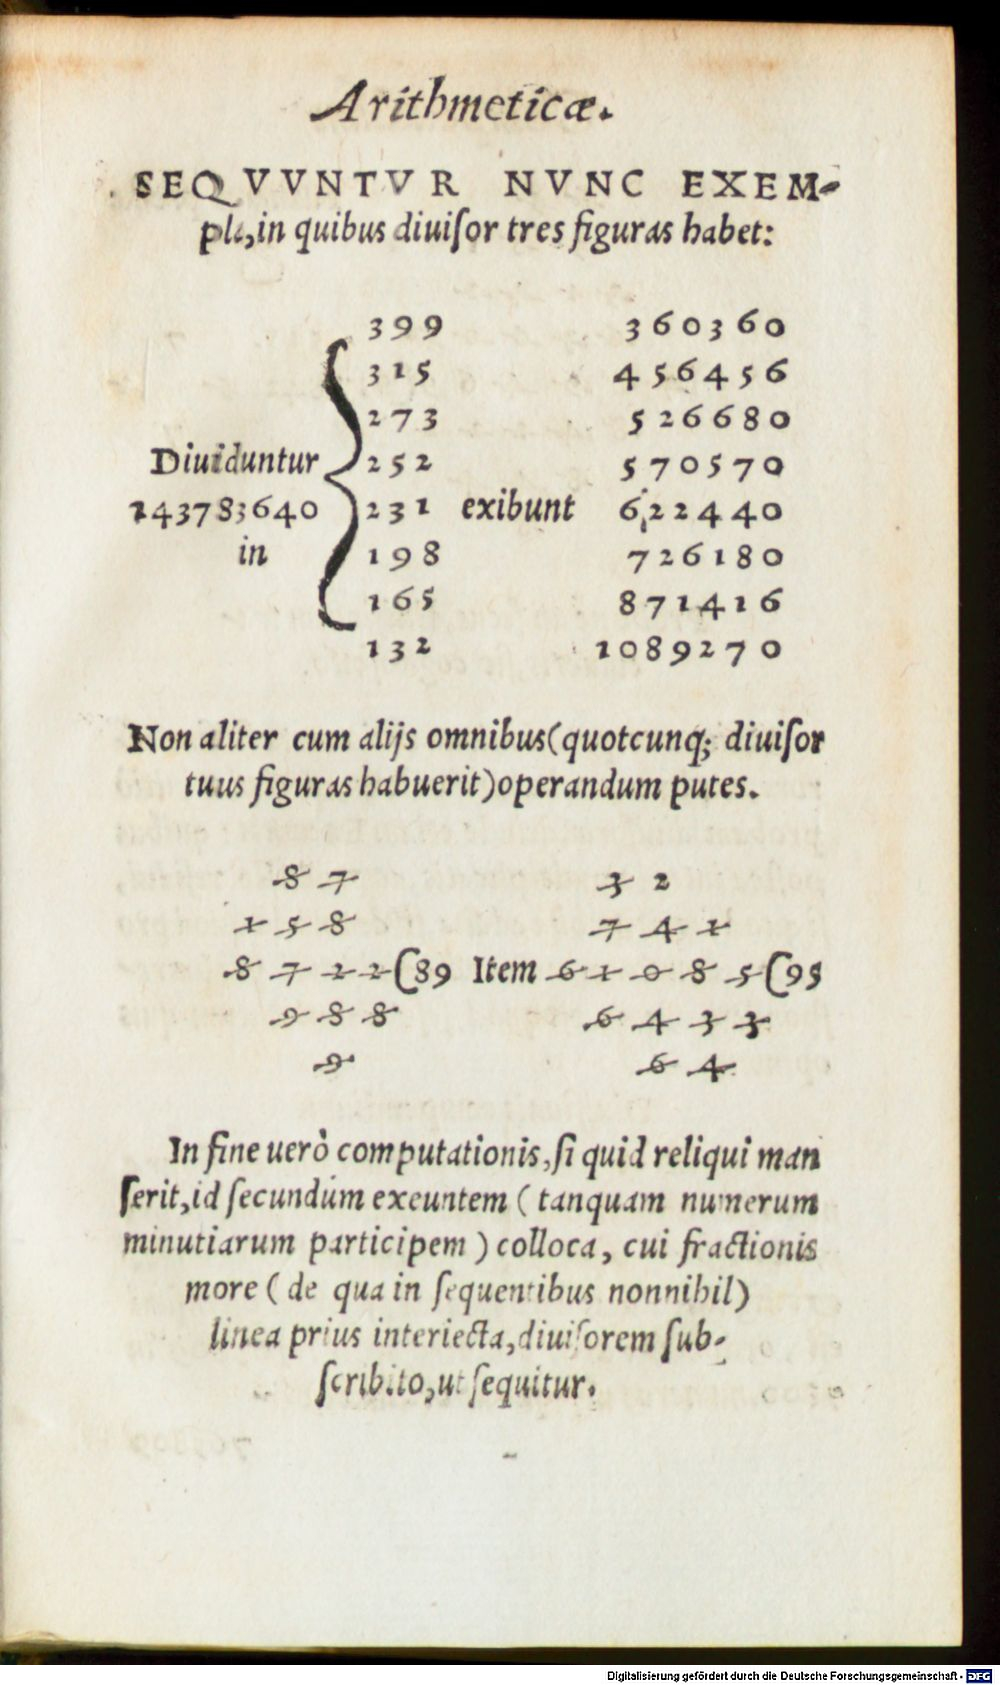 Arithmeticæ.
SEQVVNTVR NVNC EXEM-
pla, in quibus diuiſor tres figuras habet:
399 360360
315 456456
273 526680
Diuiduntur 252 570570
143783640 231 exibunt 622440
in 198 726180
165 871416
132 1089270
Non aliter cum alijs omnibus (quotcunq; diuiſor
tuus figuras habuerit) operandum putes.
8 7 3 2
1 5 8 7 4 1
8 7 2 2 (89 Item 6 1 0 8 5 (95
9 8 8 6 4 3 3
9 6 4
In fine uerò computationis, ſi quid reliqui man
ſerit, id ſecundùm exeuntem (tanquam numerum
minutiarum participem) colloca, cui fractionis
more (de qua in ſequentibus nonnihil)
linea prius interiecta, diuiſorem ſub-
ſcribito, ut ſequitur.
Digitalisierung gefördert durch die Deutsche Forschungsgemeinschaft - DFG